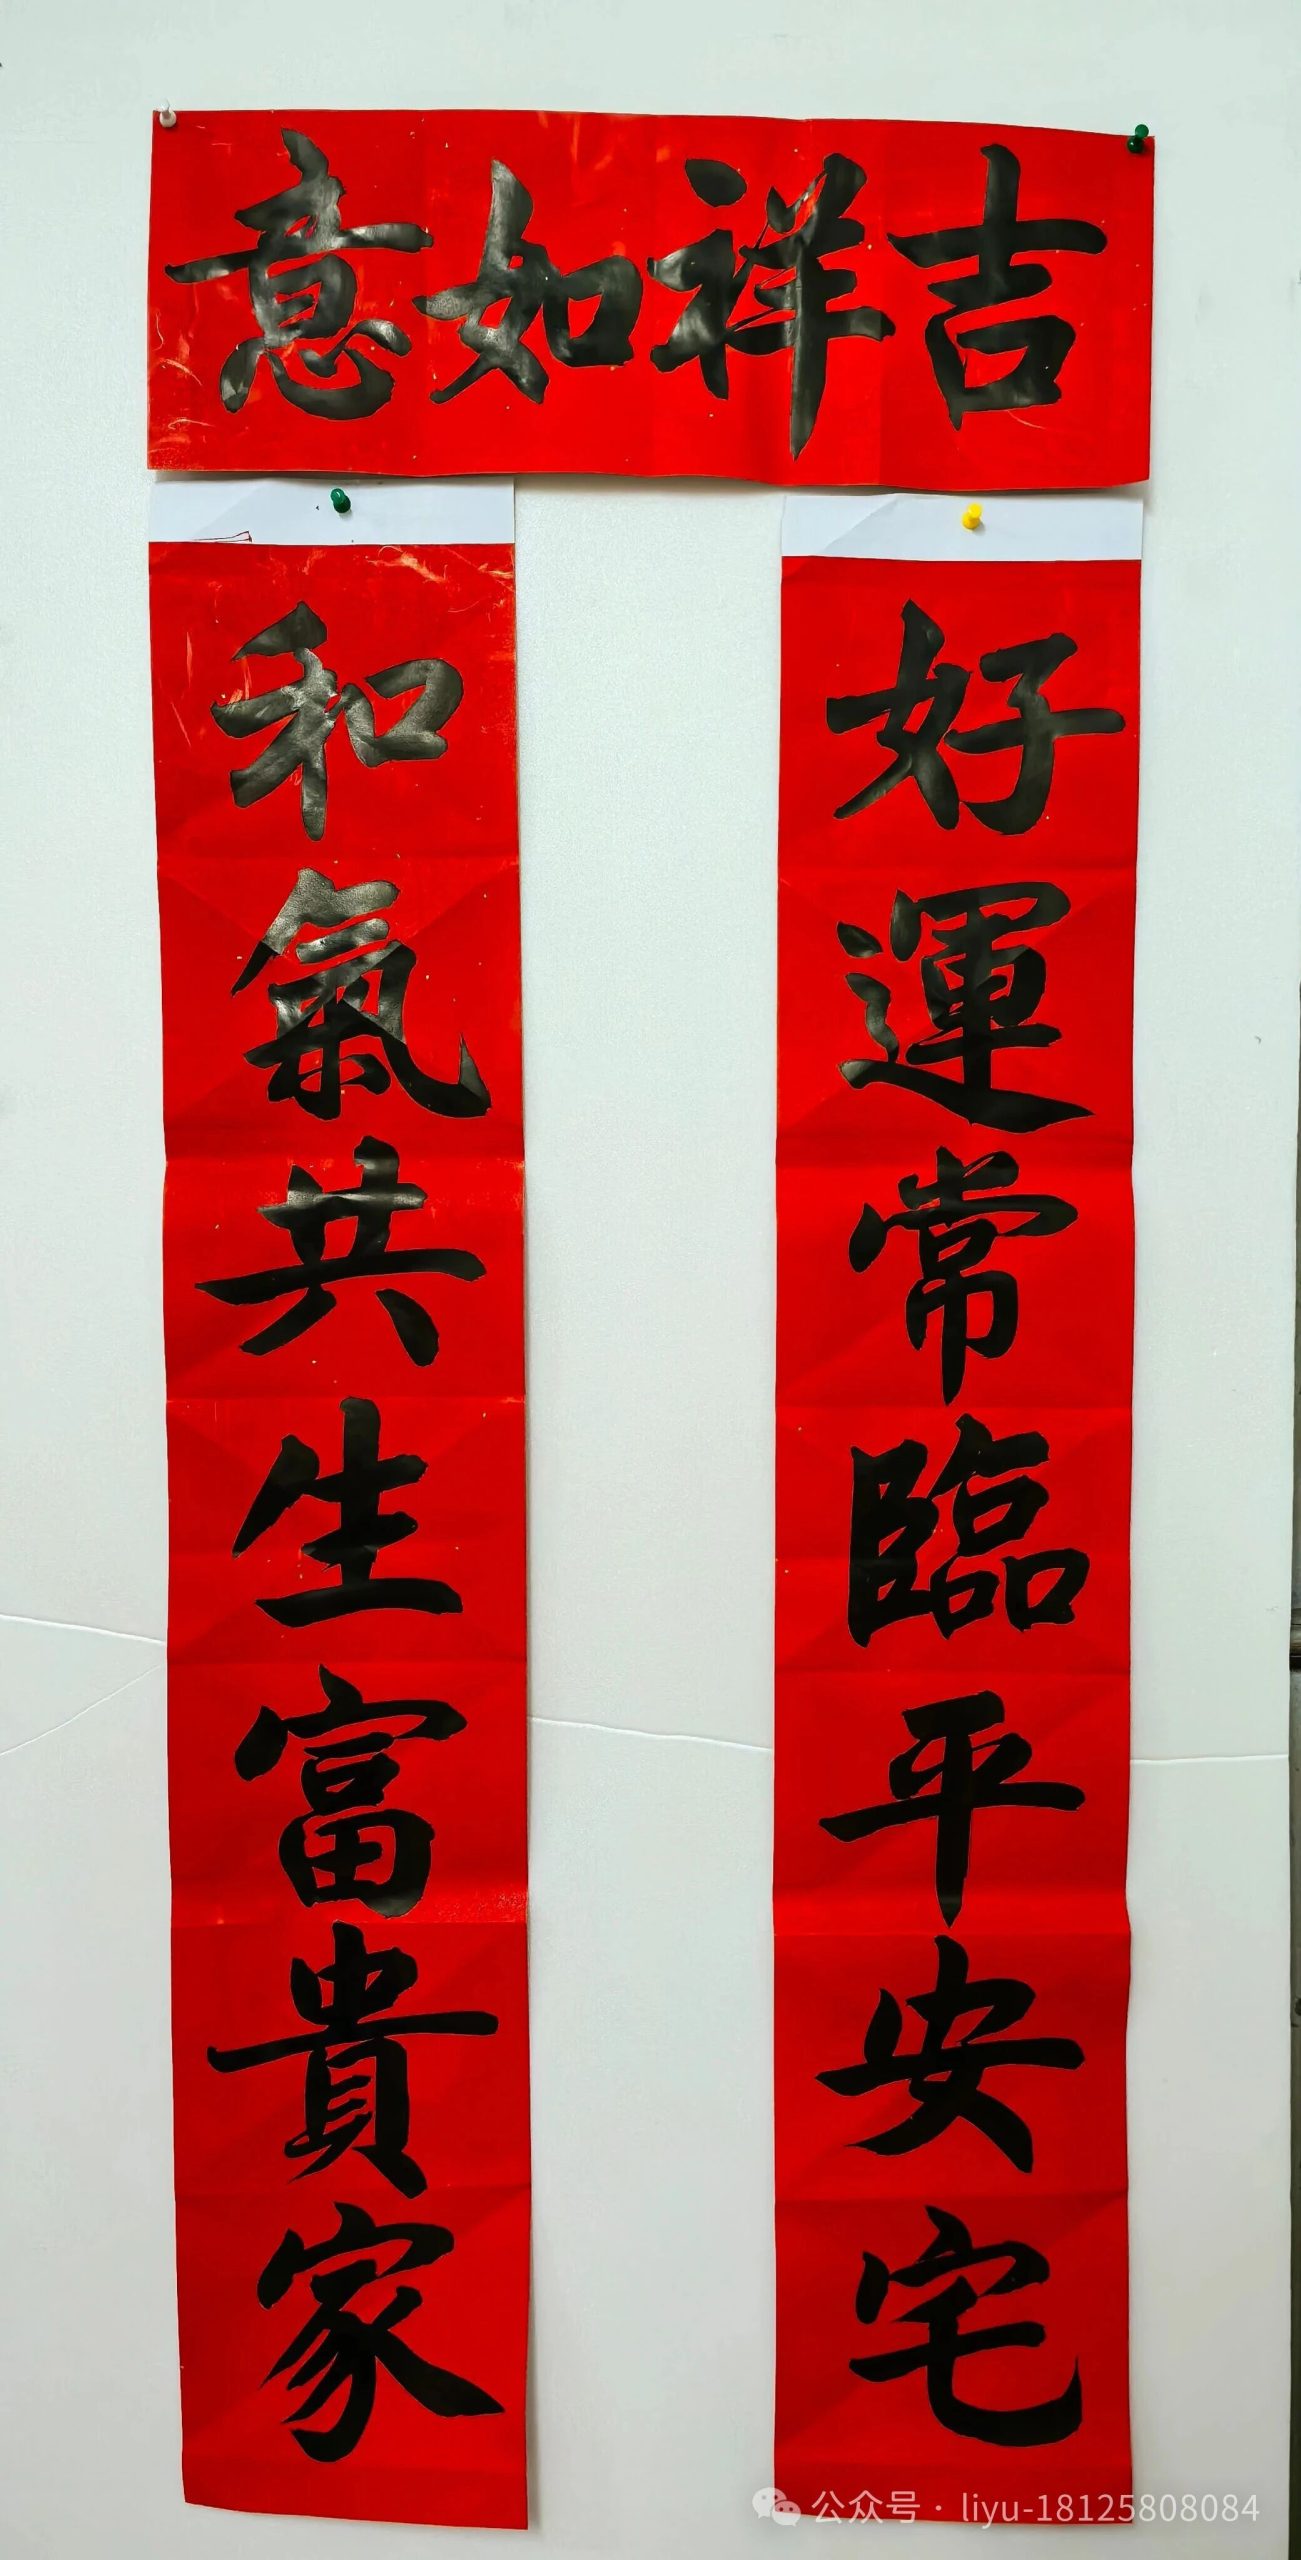 吉祥如意
好運常臨平安宅
和氣共生富貴家
公众号 · liyu-18125808084